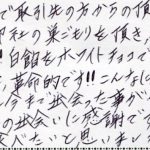 で取引先の方からの頂
御社の巣ごもりを頂き
白餡をホワイトチョコで
革命的です!!こんなに
今まで出会った事が
の出会いに感謝です
食べたいと思いまい